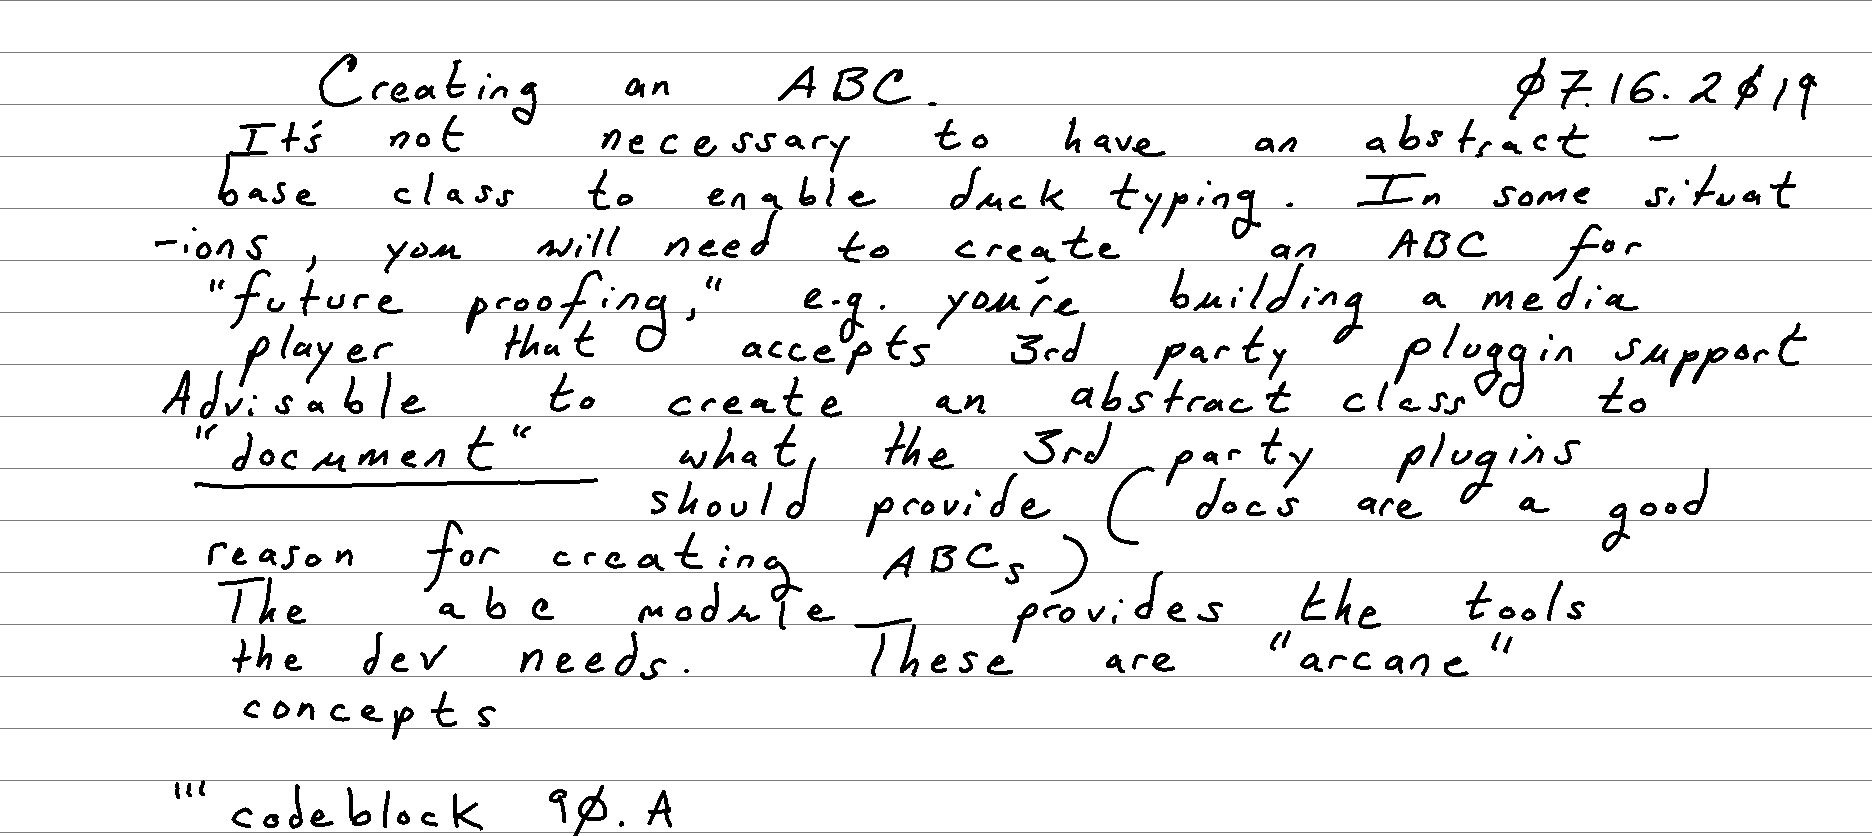 Creating an ABC. 07.16.2019
It's not necessary to have an abstract -
base class to enable duck typing. In some situat
-ions, you will need to create an ABC for
"future proofing," e.g. you're building a media
player that accepts 3rd party pluggin support
Advisable to create an abstract class to
"document" what the 3rd party plugins
should provide (docs are a good
reason for creating ABCs)
The abc module provides the tools
the dev needs. These are "arcane"
concepts
""" codeblock 90.A